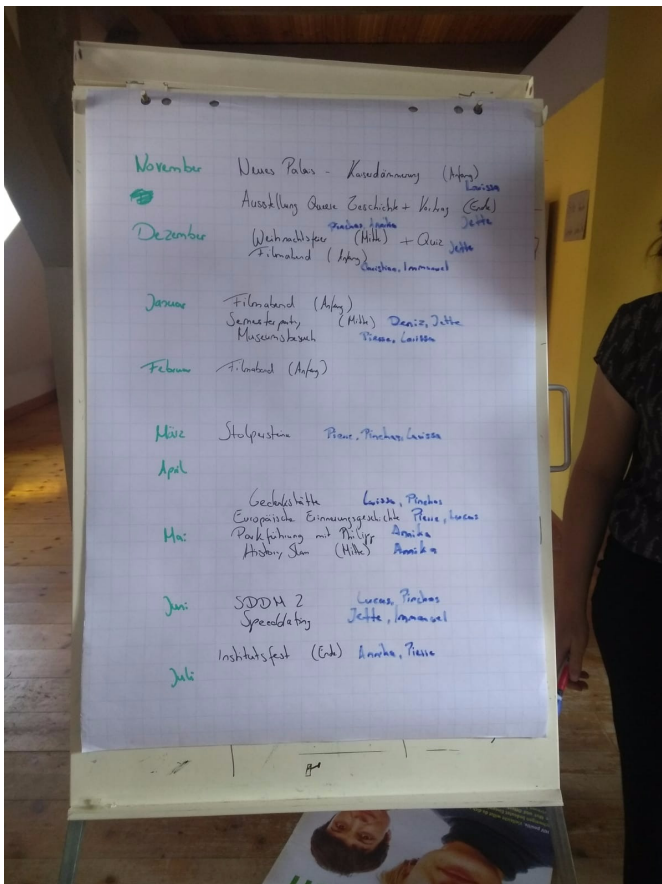 November Neues Palais - Kaiserdämmerung (Anfang)
Larissa
Ausstellung Queere Geschichte + Vortrag (Ende)
Pinchas, Annika Jette
Dezember Weihnachtsfeier (Mitte) + Quiz Jette
Filmabend (Anfang)
Christian, Immanuel
Januar Filmabend (Anfang)
Semesterparty (Mitte) Deniz, Jette
Museumsbesuch Pierre, Larissa
Februar Filmabend (Anfang)
März Stolpersteine Pierre, Pinchas, Larissa
April
Gedenkstätte Larissa, Pinchas
Europäische Erinnerungsgeschichte Pierre, Lucas
Mai Parkführung mit Philipp Annika
History Slam (Mitte) Annika
Juni SDDM 2 Lucas, Pinchas
Speeddating Jette, Immanuel
Institutsfest (Ende) Annika, Pierre
Juli